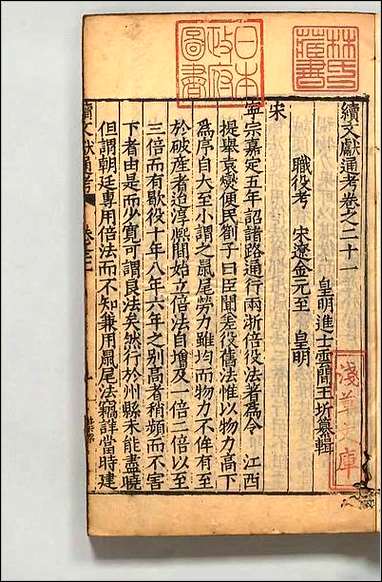 續文獻通考卷之二十一
皇明進士雲間王圻纂輯
職役考 宋遼金元至 皇明
宋
寧宗嘉定五年詔諸路通行兩浙倍役法著為令 江西
提舉袁燮便民劄子曰臣聞差役舊法惟以物力高下
為序自大至小謂之鼠尾勞力雖均而物力不侔有至
於破產者迨淳熙間始立倍法自增及一倍二倍以至
三倍而有歇役十年八年六年之別高者稍頻而不害
下者由是而少寬可謂良法矣然行於州縣未能盡曉
但謂朝廷專用倍法而不知兼用鼠尾法竊詳當時建
續文獻通考
卷之二
林氏藏書
日本政府圖書
淺草文庫